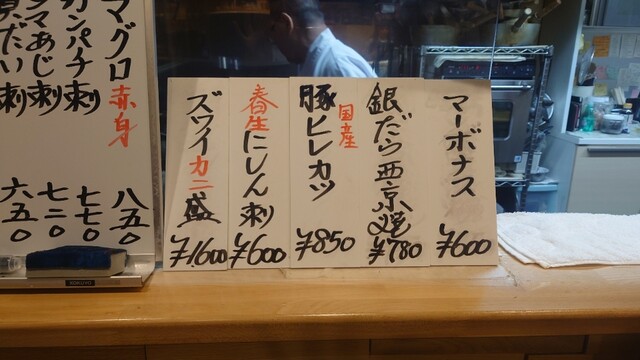 マーボナス
¥600
銀だら西京焼
¥780
国産
豚ヒレカツ
¥850
春生にしん刺
¥600
ズワイカニ盛
¥1,600
マグロ赤身
八五〇
カンパチ刺
七七〇
シマあじ刺
七二〇
真だい刺
六五〇
KOKUYO